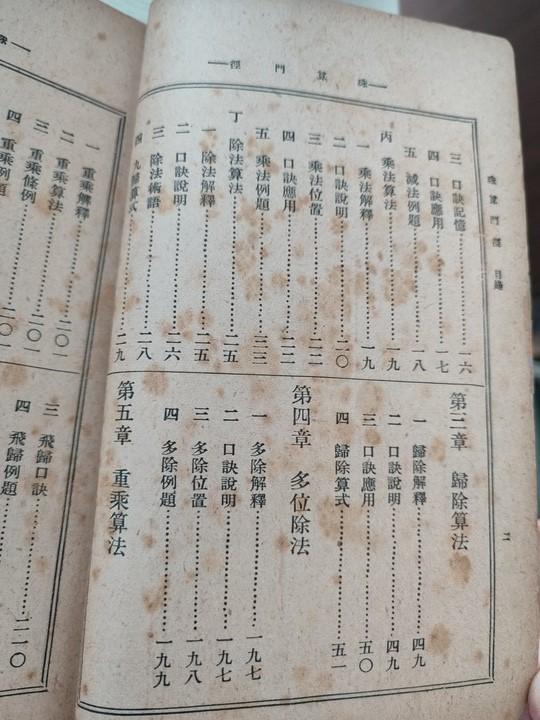 珠算門徑
珠算門徑 目錄
二
三 口訣記憶 一六
四 口訣應用 一七
五 減法例題 一八
丙 乘法算法 一九
一 乘法解釋 一九
二 口訣說明 二〇
三 乘法位置 二二
四 口訣應用 二二
五 乘法例題 三三
丁 除法算法 二五
一 除法解釋 二五
二 口訣說明 二六
三 除法術語 二八
四 九歸算式 二九
第三章 歸除算法
一 歸除解釋 四九
二 口訣說明 四九
三 口訣應用 五〇
四 歸除算式 五一
第四章 多位除法
一 多除解釋 一九七
二 口訣說明 一九七
三 多除位置 一九八
四 多除例題 一九九
第五章 重乘算法
一 重乘解釋 二〇一
二 重乘算法 二〇一
三 重乘條例 二〇一
四 重乘例題
三 飛歸口訣
四 飛歸例題 二一〇